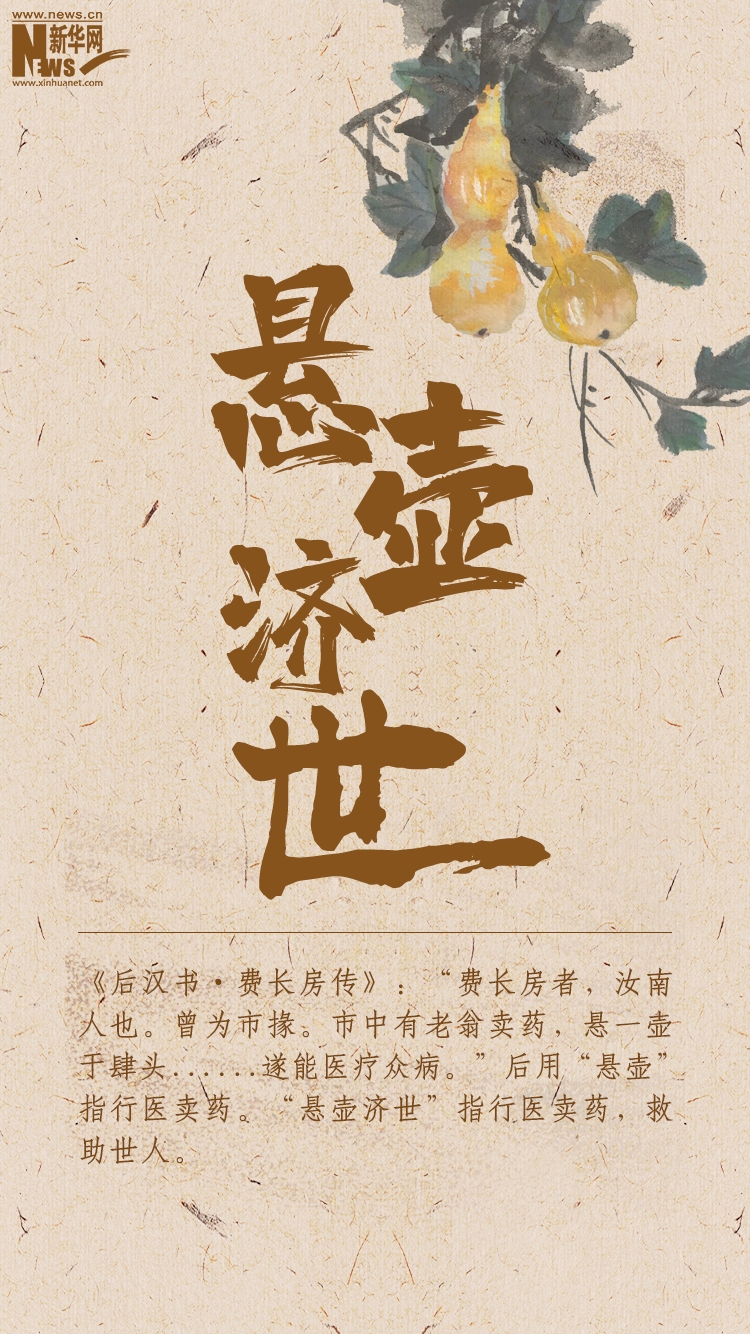 www.news.cn
NEWS 新华网
www.xinhuanet.com
悬壶济世
《后汉书·费长房传》：“费长房者，汝南
人也。曾为市掾。市中有老翁卖药，悬一壶
于肆头......遂能医疗众病。”后用“悬壶”
指行医卖药。“悬壶济世”指行医卖药，救
助世人。